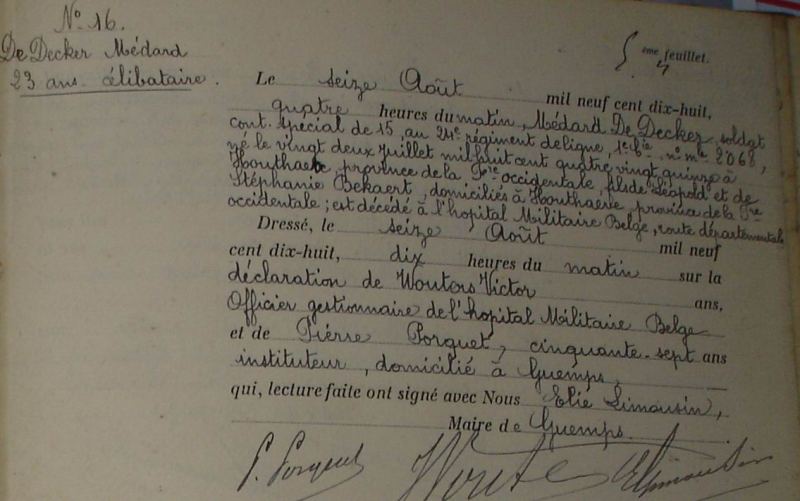 N° 16.
De Decker Médard
23 ans célibataire.
5 ème feuillet.
Le seize Août mil neuf cent dix-huit,
quatre heures du matin, Médard De Decker, soldat
cont. spécial de 15, au 24e régiment de ligne, 1e Cie, n° mle 2068,
né le vingt deux Juillet mil huit cent quatre vingt quinze à
Houthaeve, province de la Fre occidentale, fils de Léopold et de
Stéphanie Bekaert, domiciliés à Houthaeve, province de la Fre
occidentale ; est décédé à l'hopital Militaire Belge, route départementale
Dressé, le seize Août mil neuf
cent dix-huit, dix heures du matin sur la
déclaration de Wouters Victor ans,
Officier gestionnaire de l'hopital Militaire Belge
et de Pierre Porquet, cinquante-sept ans
instituteur, domicilié à Guemps,
qui, lecture faite ont signé avec Nous Elie Limousin,
Maire de Guemps.
P. Porquet Woute ELimousin